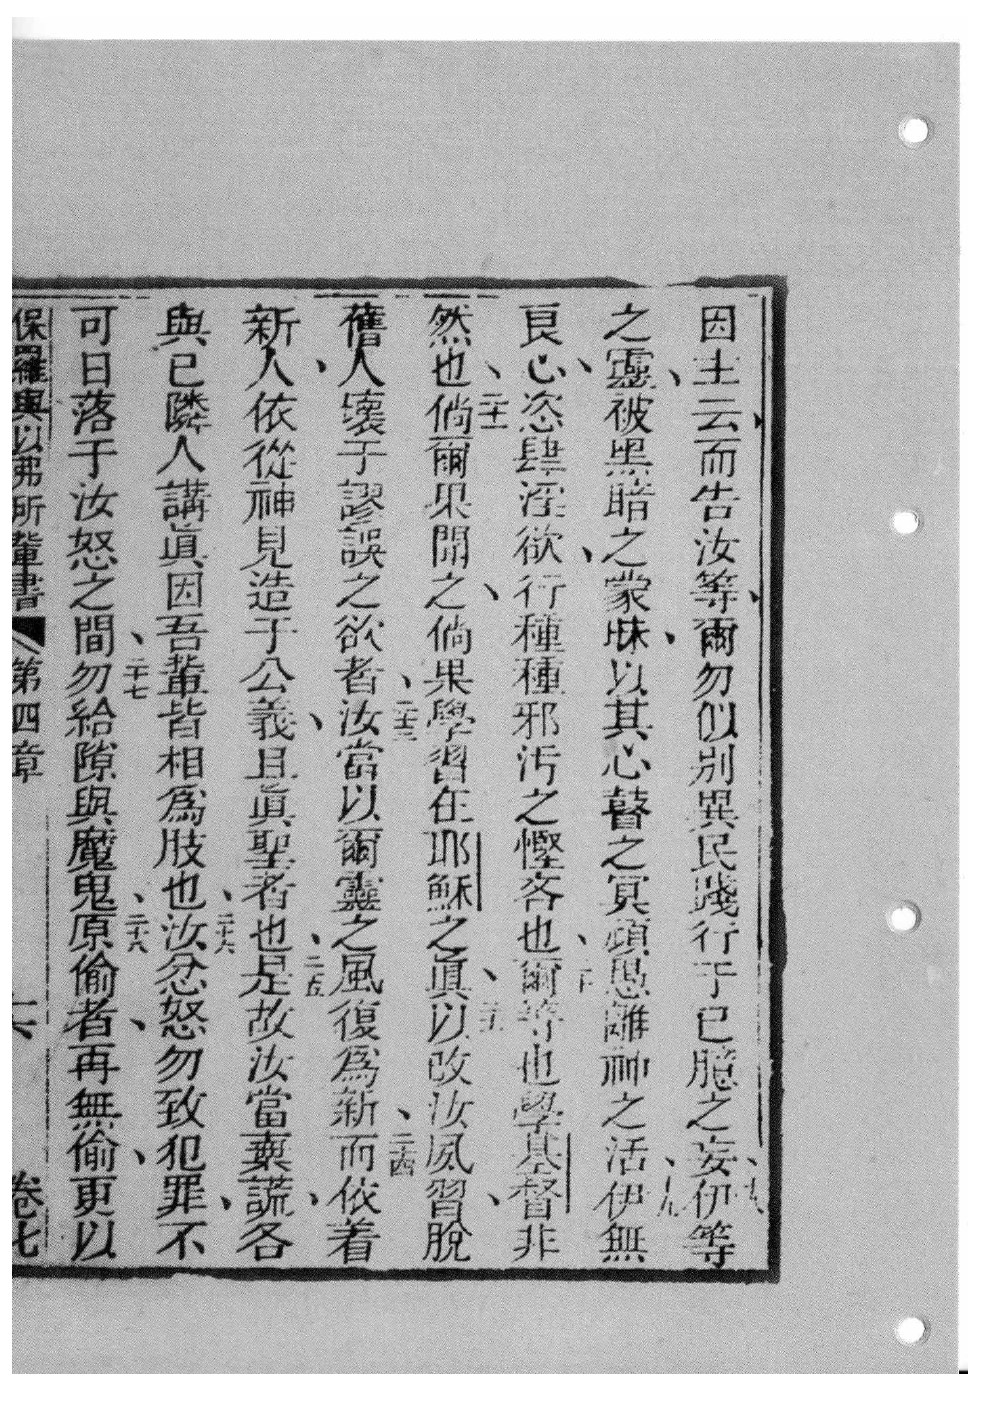 因主云、而告汝等、爾勿似別異民踐行于己臆之妄、十八伊等
之靈、被黑暗之蒙昧、以其心瞽之冥頑思離神之活、十九伊無
良心、恣肆淫欲、行種種邪污之慳吝也、二十爾等也學基督非
然也、二十一倘爾果聞之、倘果學習在耶穌之眞、二十二以改汝夙習、脫
舊人壞于謬誤之欲者、二十三汝當以爾靈之風復爲新、二十四而依着
新人、依從神見造于公義、且眞聖者也、二十五是故汝當棄謊、各
與己隣人講眞因吾輩皆相爲肢也、二十六汝忿怒勿致犯罪、不
可日落于汝怒之間、二十七勿給隙與魔鬼、二十八原偷者、再無偷、更以
保羅與以弗所輩書 第四章 卷七